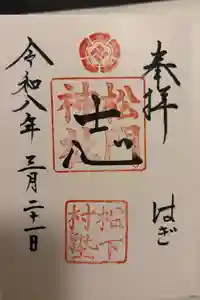 奉拝
はぎ
志
松陰神社
松下村塾
令和八年三月二十一日